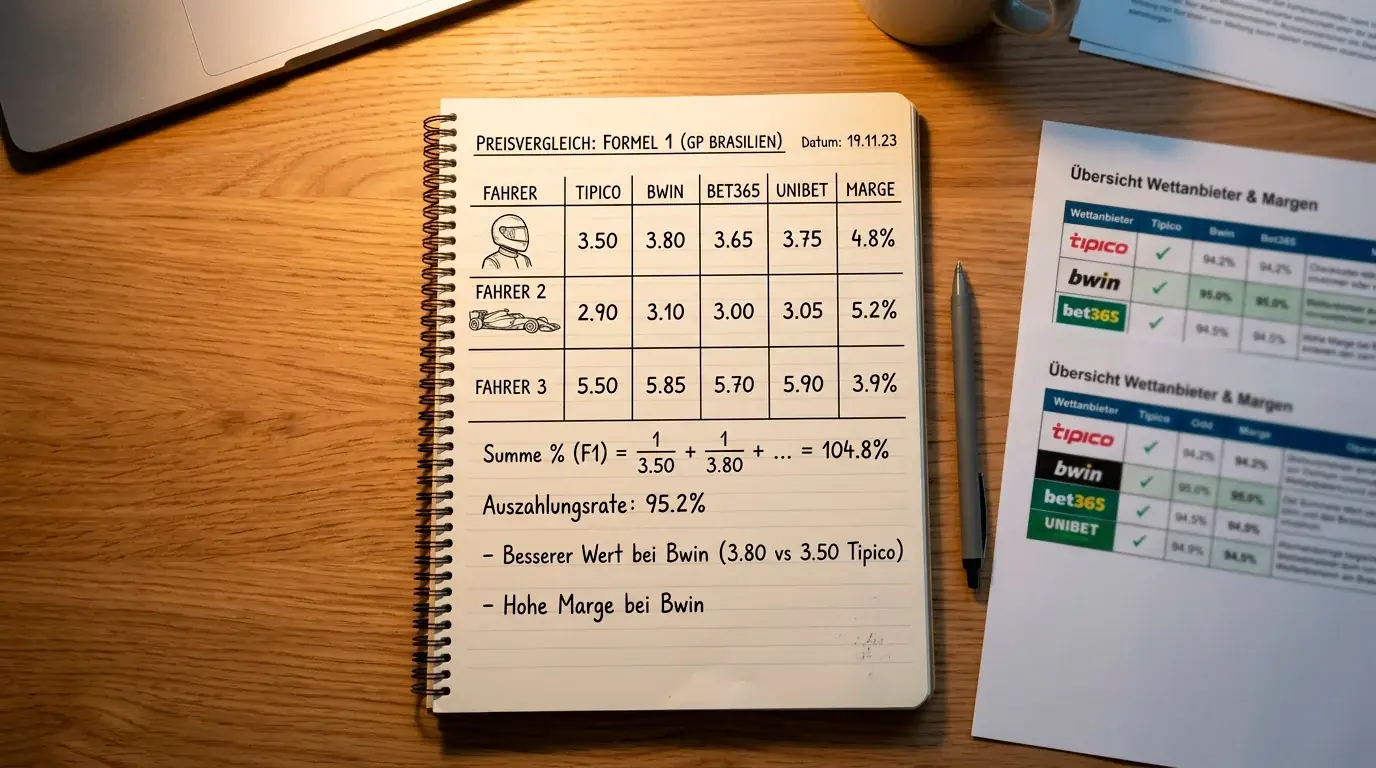 PREISVERGLEICH: FORMEL 1 (GP BRASILIEN) Datum: 19.11.23
FAHRER TIPICO BWIN BET365 UNIBET MARGE
3.50 3.80 3.65 3.75 4.8%
FAHRER 2 2.90 3.10 3.00 3.05 5.2%
FAHRER 3 5.50 5.85 5.70 5.90 3.9%
Summe % (F1) = 1/3.50 + 1/3.80 + ... = 104.8%
Auszahlungsrate: 95.2%
- Besserer Wert bei Bwin (3.80 vs 3.50 Tipico)
- Hohe Marge bei Bwin
Übersicht Wettanbieter & Margen
Wettanbieter Tipico Bwin Bet365
tipico ✓ 94.2% 94.2%
bwin ✓ 95.0% 95.0%
bet365 ✓ 94.5% 94.5%
Übersicht Wettanbieter & Margen
Wettanbieter Tipico Odd Marge
tipico ✓ 94.2% 94.2%
bwin ✓ 95.0% 95.0%
bet365 ✓ 94.5% 94.5%
UNIBET ✓ 94.9% 94.5%